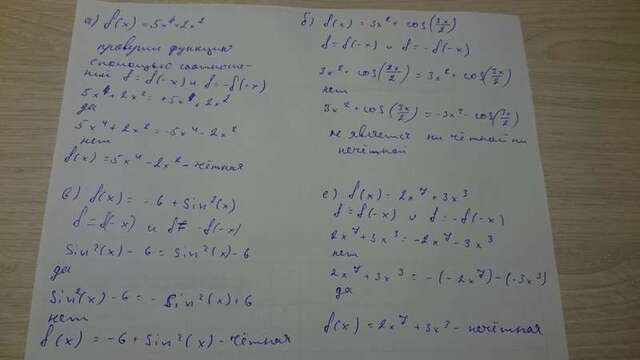 а) f(x) = 5x⁴+2x²
проверим функцию
с помощью соотноше-
ний f = f(-x) и f = -f(-x)
5x⁴+2x² = +5x⁴+2x²
да
5x⁴+2x² = -5x⁴-2x²
нет
f(x) = 5x⁴-2x² - чётная
б) f(x) = 3x² + cos(3x/2)
f = f(-x) и f = -f(-x)
3x² + cos(3x/2) = 3x² + cos(3x/2)
нет
3x² + cos(3x/2) = -3x² - cos(3x/2)
не является ни чётной ни
нечётной
в) f(x) = -6 + Sin²(x)
f = f(-x) и f ≠ -f(-x)
Sin²(x) - 6 = Sin²(x) - 6
да
Sin²(x) - 6 = -Sin²(x) + 6
нет
f(x) = -6 + Sin²(x) - чётная
е) f(x) - 2x⁷ + 3x³
f = f(-x) и f = -f(-x)
2x⁷ + 3x³ = -2x⁷ - 3x³
нет
2x⁷ + 3x³ = -(-2x⁷) - (-3x³)
да
f(x) = 2x⁷ + 3x³ - нечётная